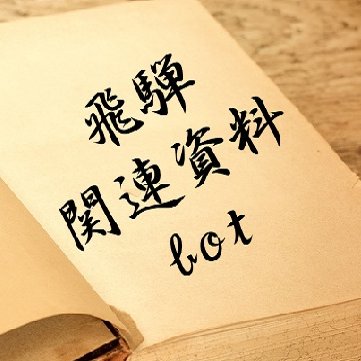 飛騨
関連資料
bot